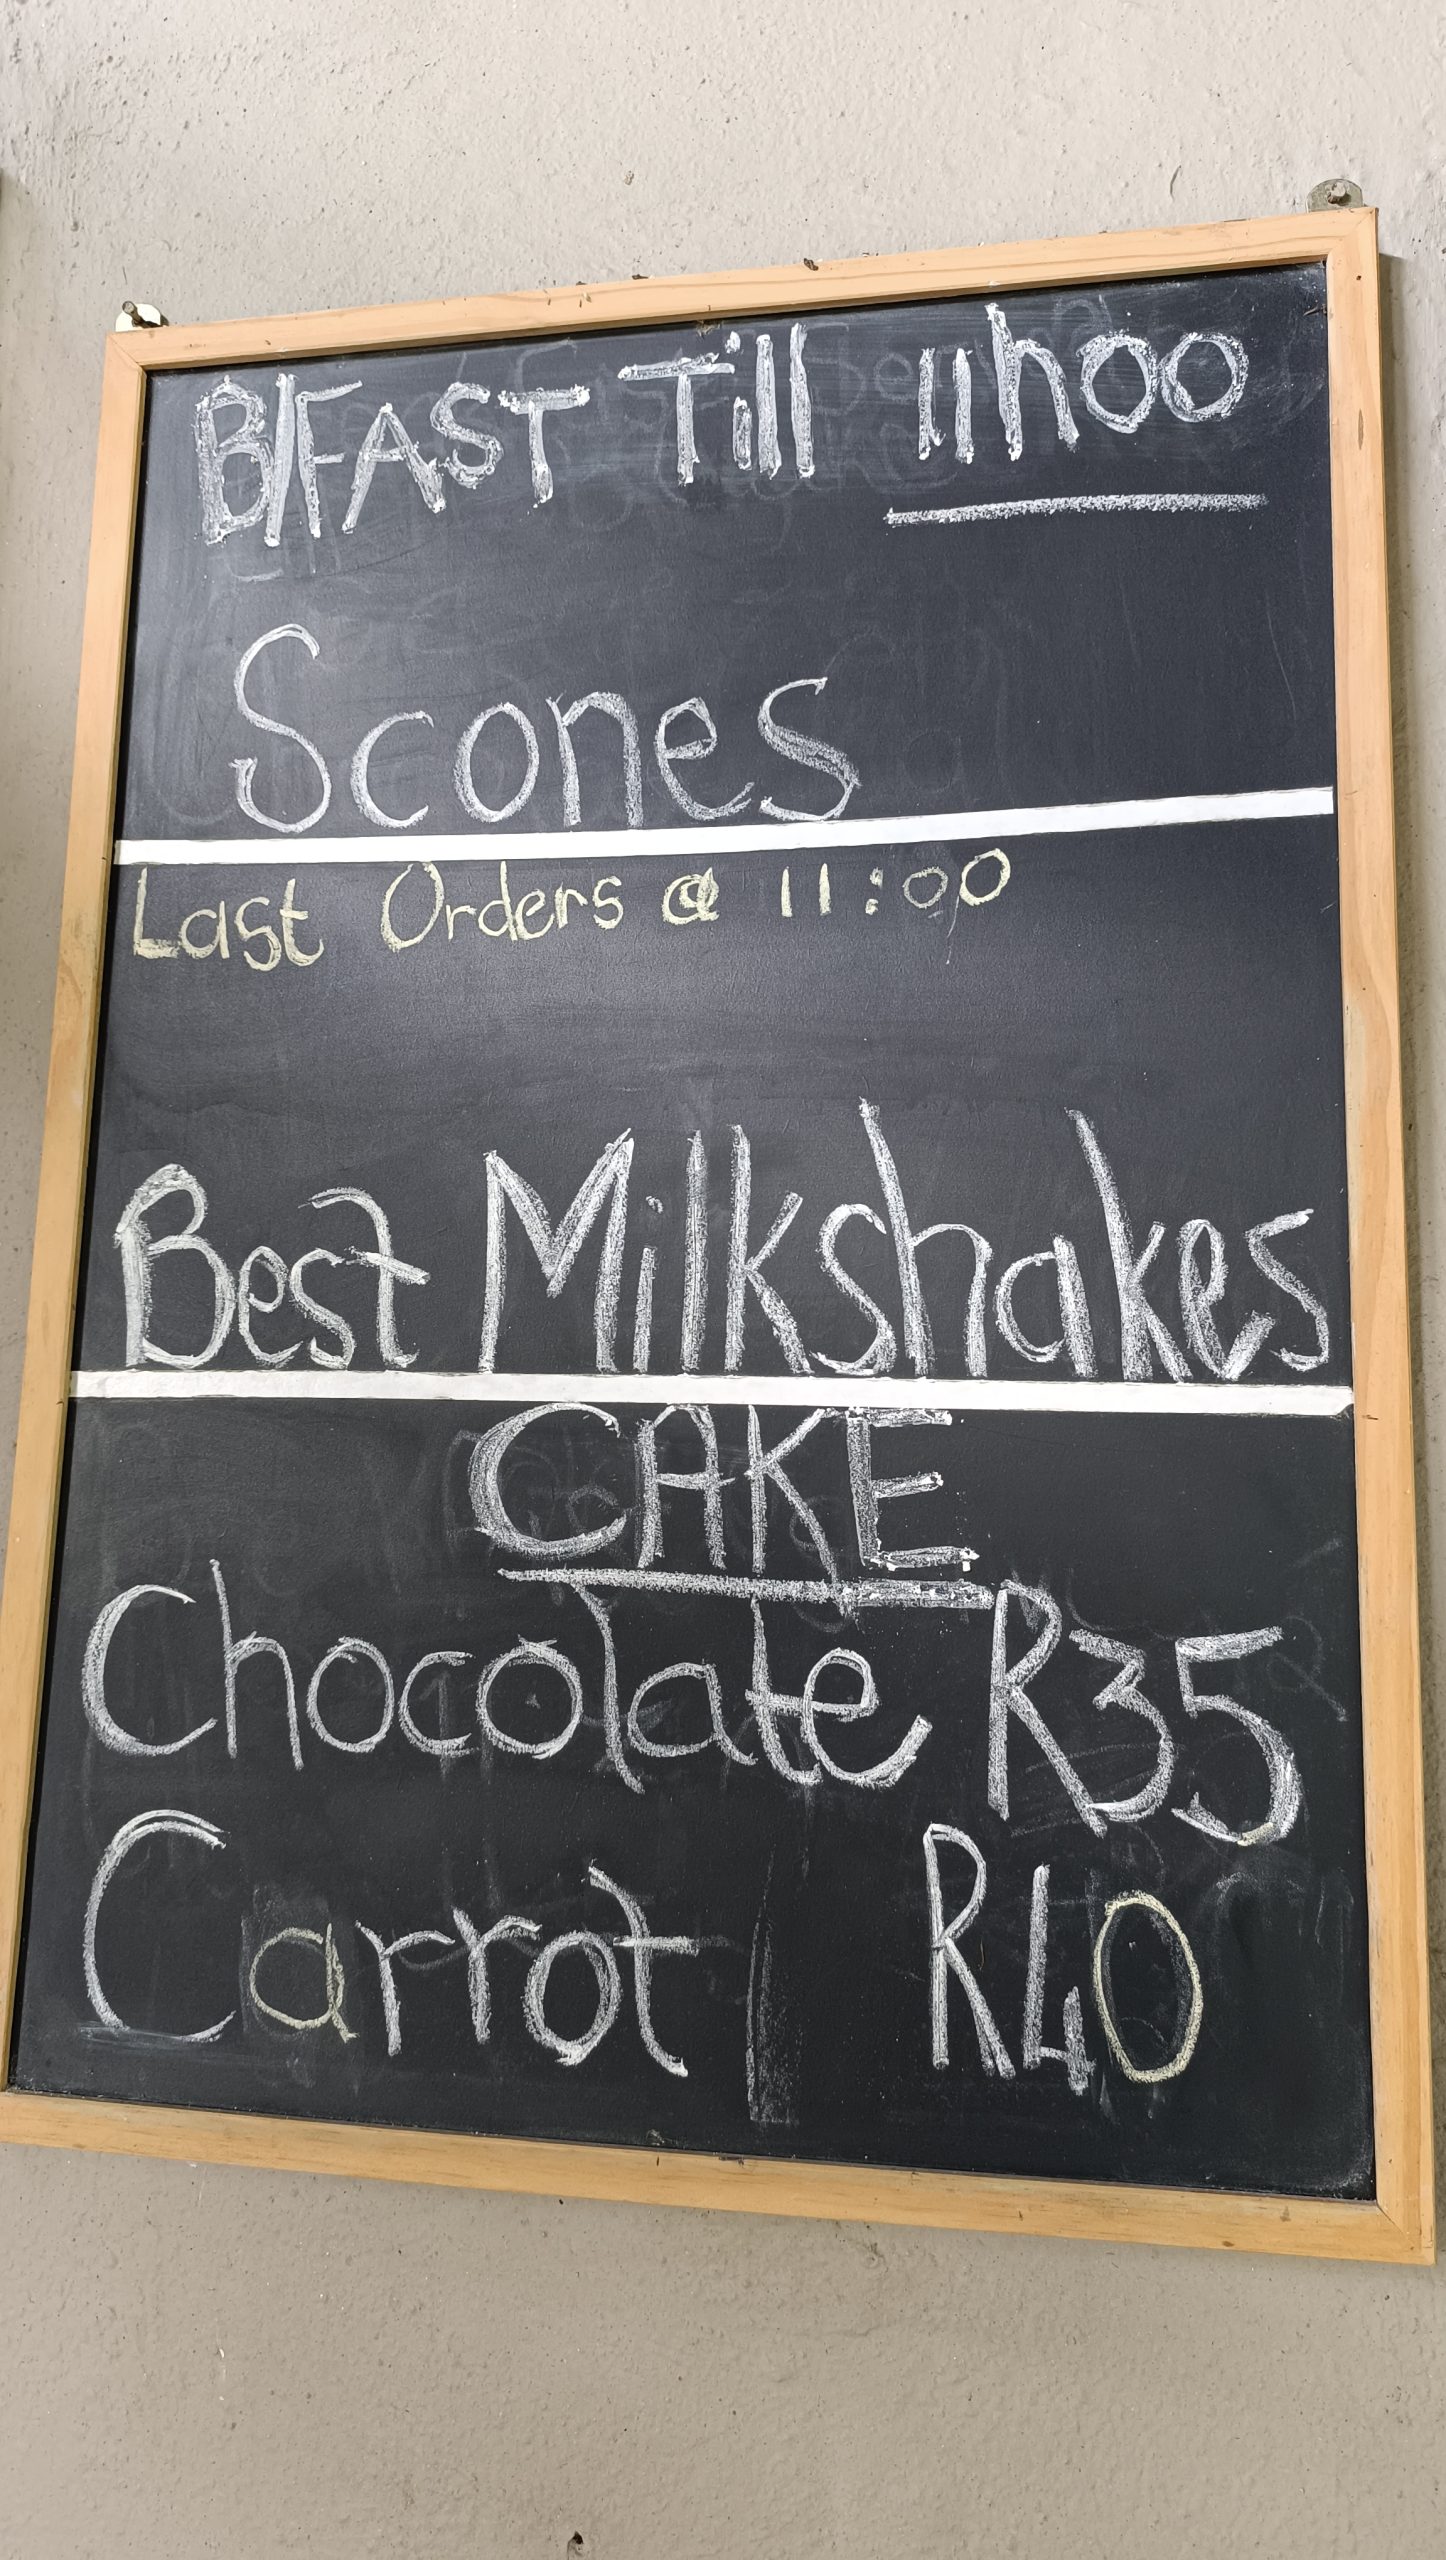 B/FAST Till 11h00
Scones
Last Orders @ 11:00
Best Milkshakes
CAKE
Chocolate R35
Carrot R40